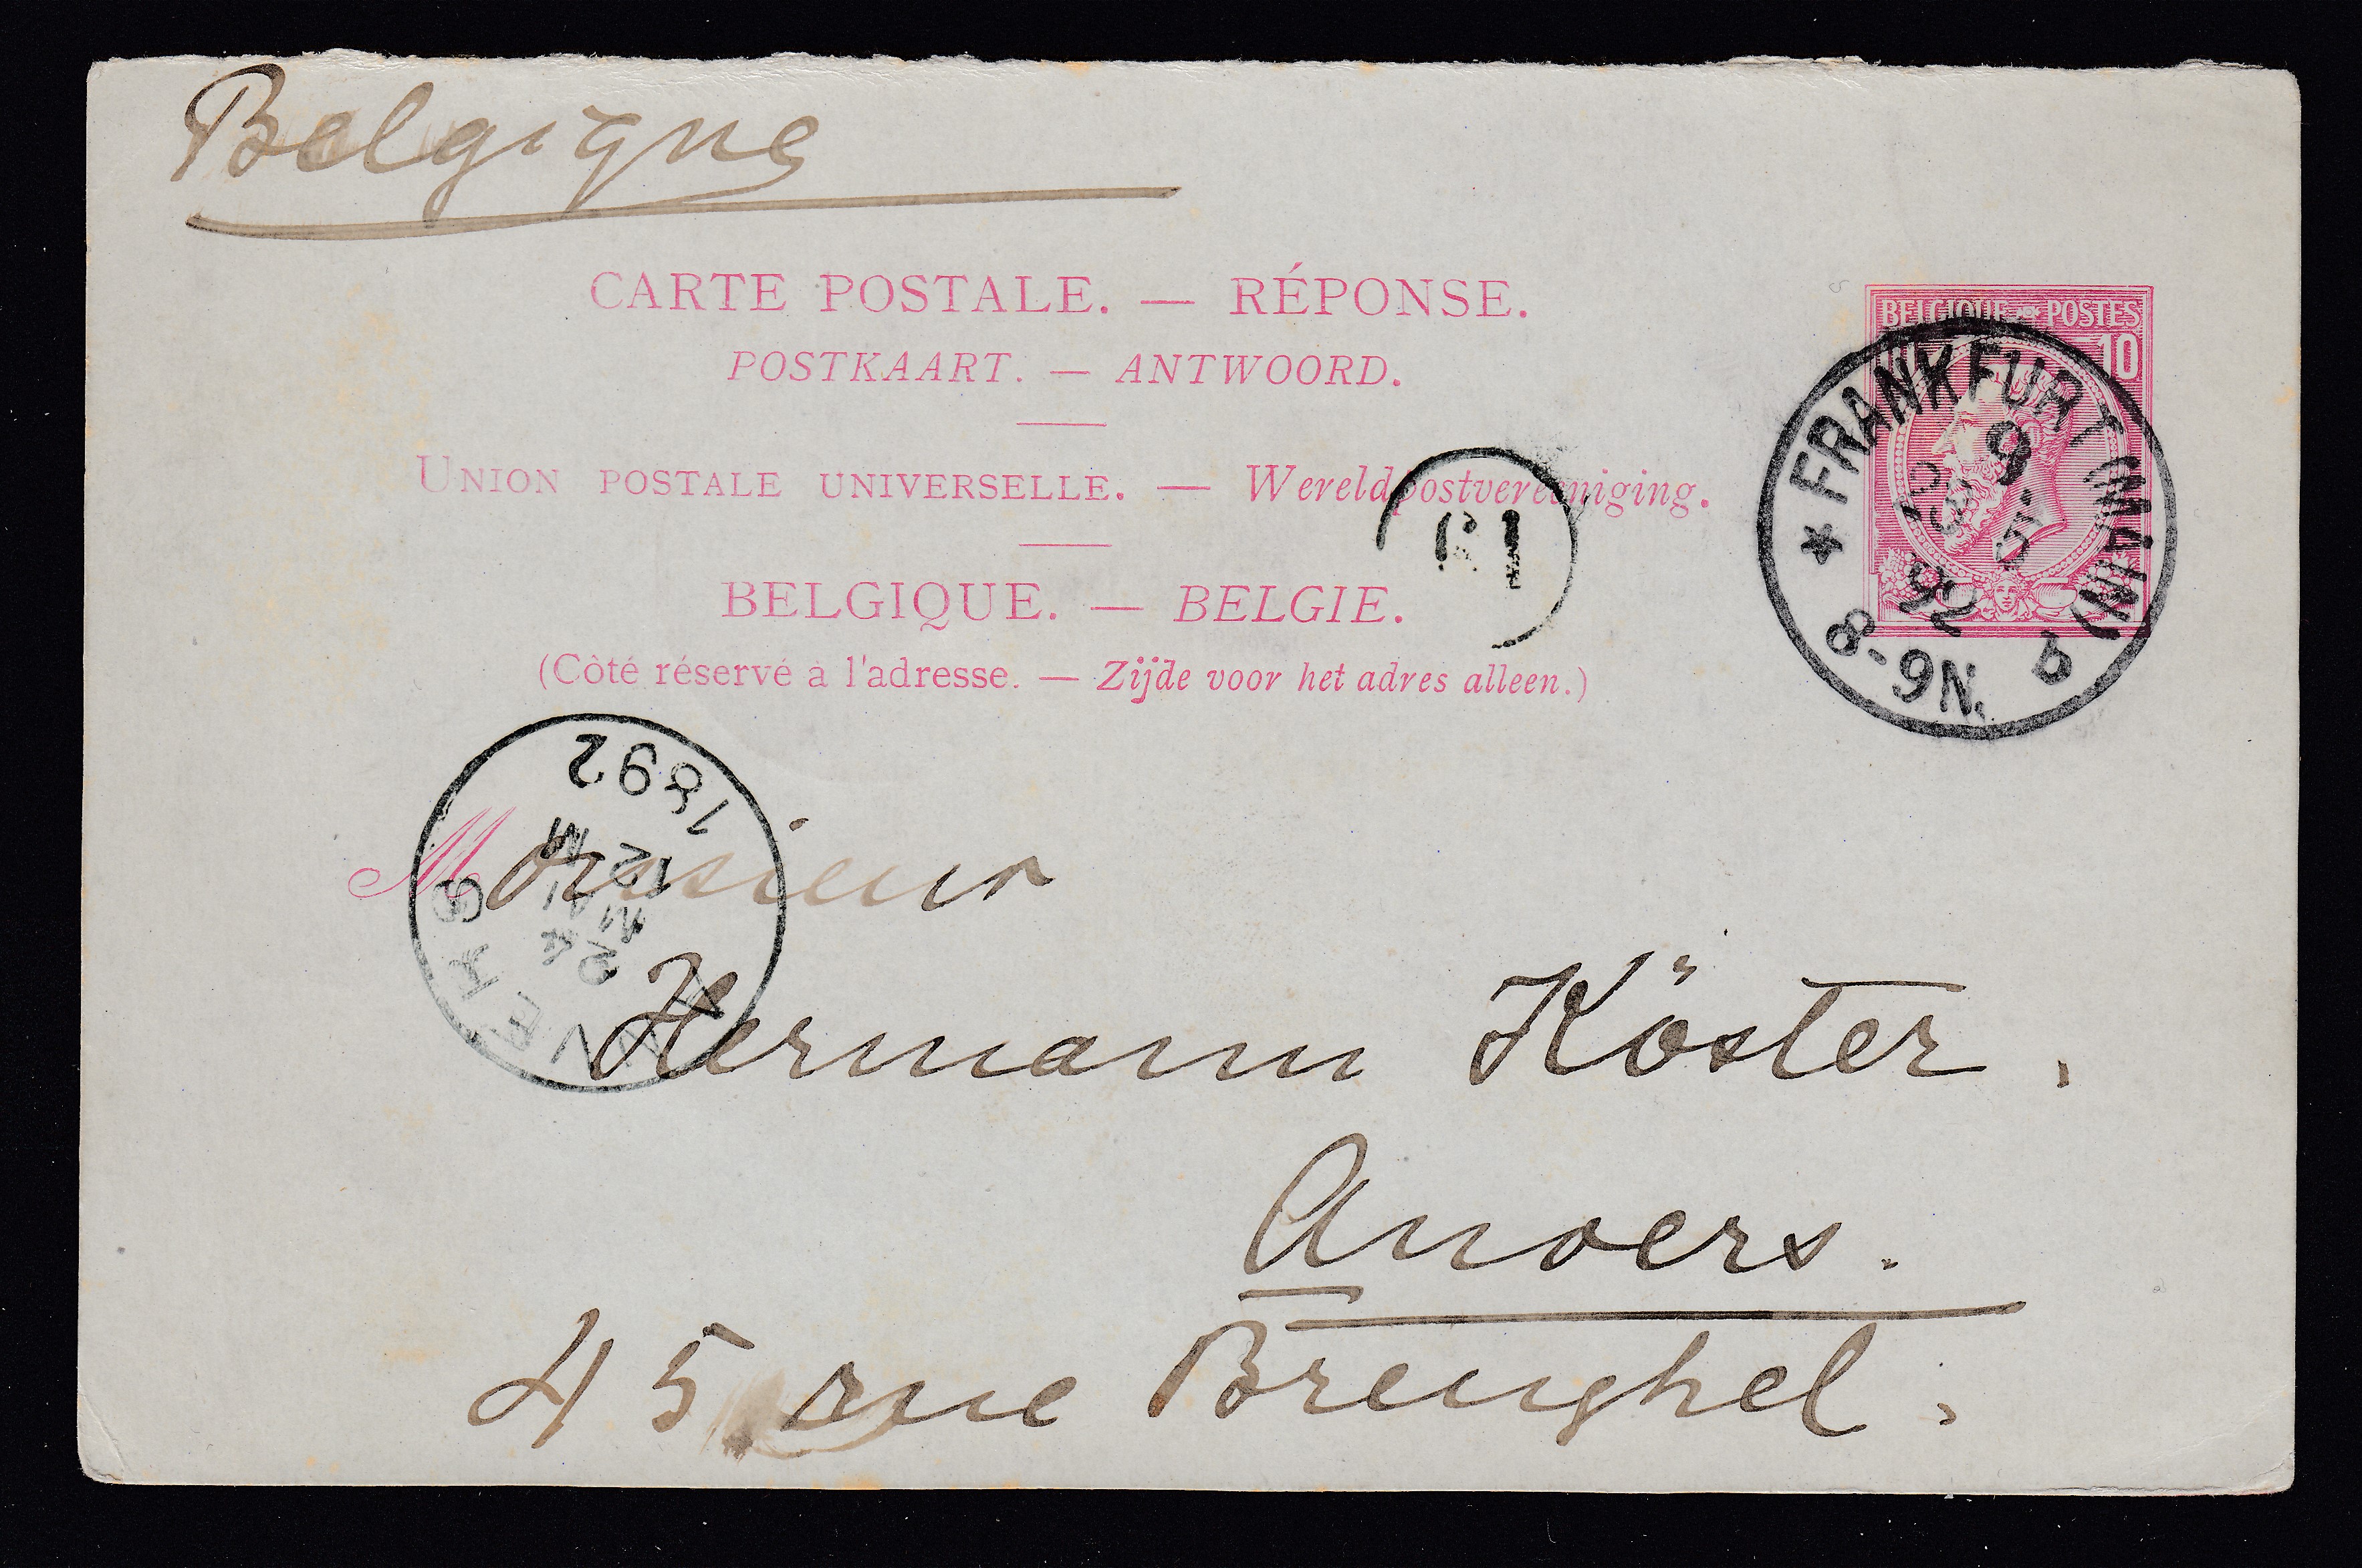 Belgique
CARTE POSTALE. — RÉPONSE.
POSTKAART. — ANTWOORD.
UNION POSTALE UNIVERSELLE. — Wereldpostvereeniging.
BELGIQUE. — BELGIE.
(Côté réservé à l'adresse. — Zijde voor het adres alleen.)
BELGIQUE POSTES
10
FRANKFURT (MAIN)
* 8-9N. b
9. 5
92
ANVERS
12 M
1892
Monsieur
Hermann Köster,
Anvers.
45 rue Breughel,